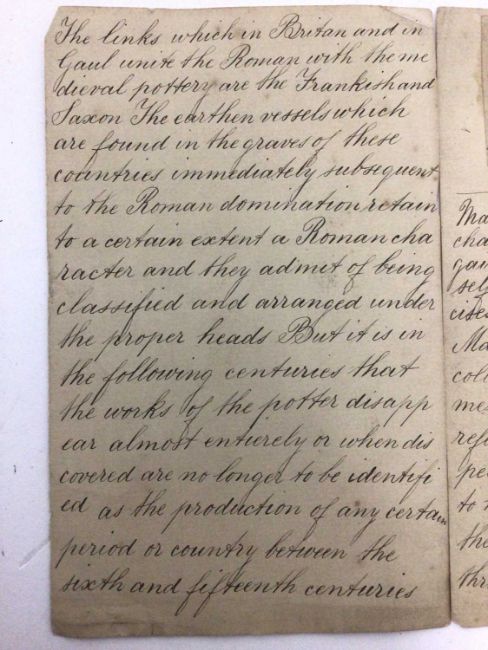 The links which in Britan and in
Gaul unite the Roman with the me
dieval pottery are the Frankish and
Saxon The earthen vessels which
are found in the graves of these
countries immediately subsequent
to the Roman domination retain
to a certain extent a Roman cha
racter and they admit of being
classified and arranged under
the proper heads But it is in
the following centuries that
the works of the potter disapp
ear almost entirely or when dis
covered are no longer to be identifi
ed as the production of any certain
period or country between the
sixth and fifteenth centuries
Ma
cha
gau
sel
cise
Ma
colo
me
refe
pe
to
the
thr